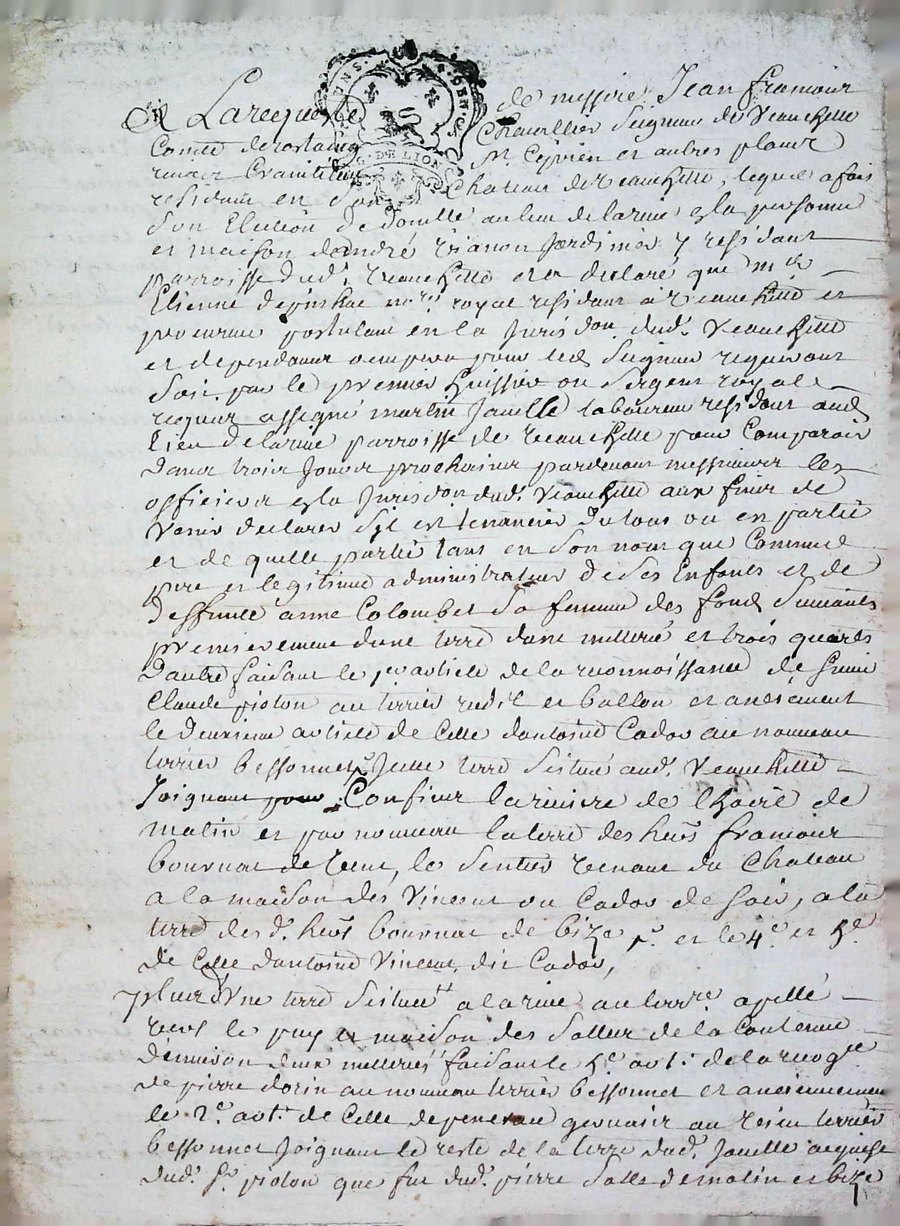 GEN. DE LION
A La requeste de messire Jean françois
Comte de rostaing Chevallier Seigneur de Veauchette
St. Ciprien et autres places
residant en son Chateau de Veauchette, lequel a fait
Son Election de domille au lieu de la rive en la personne
et maison dandré vianon Jardinier y residant
parroisse dud. Veauchette et a declaré que me.
Etienne royal residant a Veauchette et
procureur postulant en la Jurisdon. dud. Veauchette
et dependances occupera pour led. Seigneur requerant
Soit par le premier huissier ou Sergent royal
requis assigné martin Janelle laboureur residant aud.
Lieu de la rive parroisse de Veauchette pour Comparoir
dans trois Jours prochains pardevant messieurs les
officiers en la Jurisdon. dud. Veauchette aux fins de
Venir declarer Sil est tenancier du tout ou en partie
et de quelle partie tant en Son nom que Comme
pere et legitime administrateur de Ses Enfants et de
deffunte anne Colombet Sa femme des fonds Suivants
premierement dune terre dune metterée et trois quarts
dautre faisant le per. article de la reconnoissance de
Claude pioton au terrier et ballon et anciennement
le deuxieme article de Celle dantoine Cador au nouveau
terrier bessonnet, Jcelle terre Scituée aud. Veauchette
Joignant Confins la riviere de Loire de
matin et par nouveau la terre des heirs françois
bournat de bent, le Sentier Tenant du Chateau
a la maison des Vincent ou Cador de Soir, a la
terre des d. heirs bournat de bize et le 4e. et 5e.
de Celle dantoine Vincent, dit Cador,
plus Une terre Scituée a la rive au terre. apellé
vers le puy et maison des Salles de la Contenue
denviron deux metterées faisant le 5e. arti. de la recogce.
de pierre dorin au nouveau terrier bessonnet et anciennement
le 2e. arti. de Celle de gervais au vieu terrier
bessonnet Joignant le reste de la terre dud. Janelle acquise
dud. Sr. pioton que fut dud. pierre Salle de matin et bize